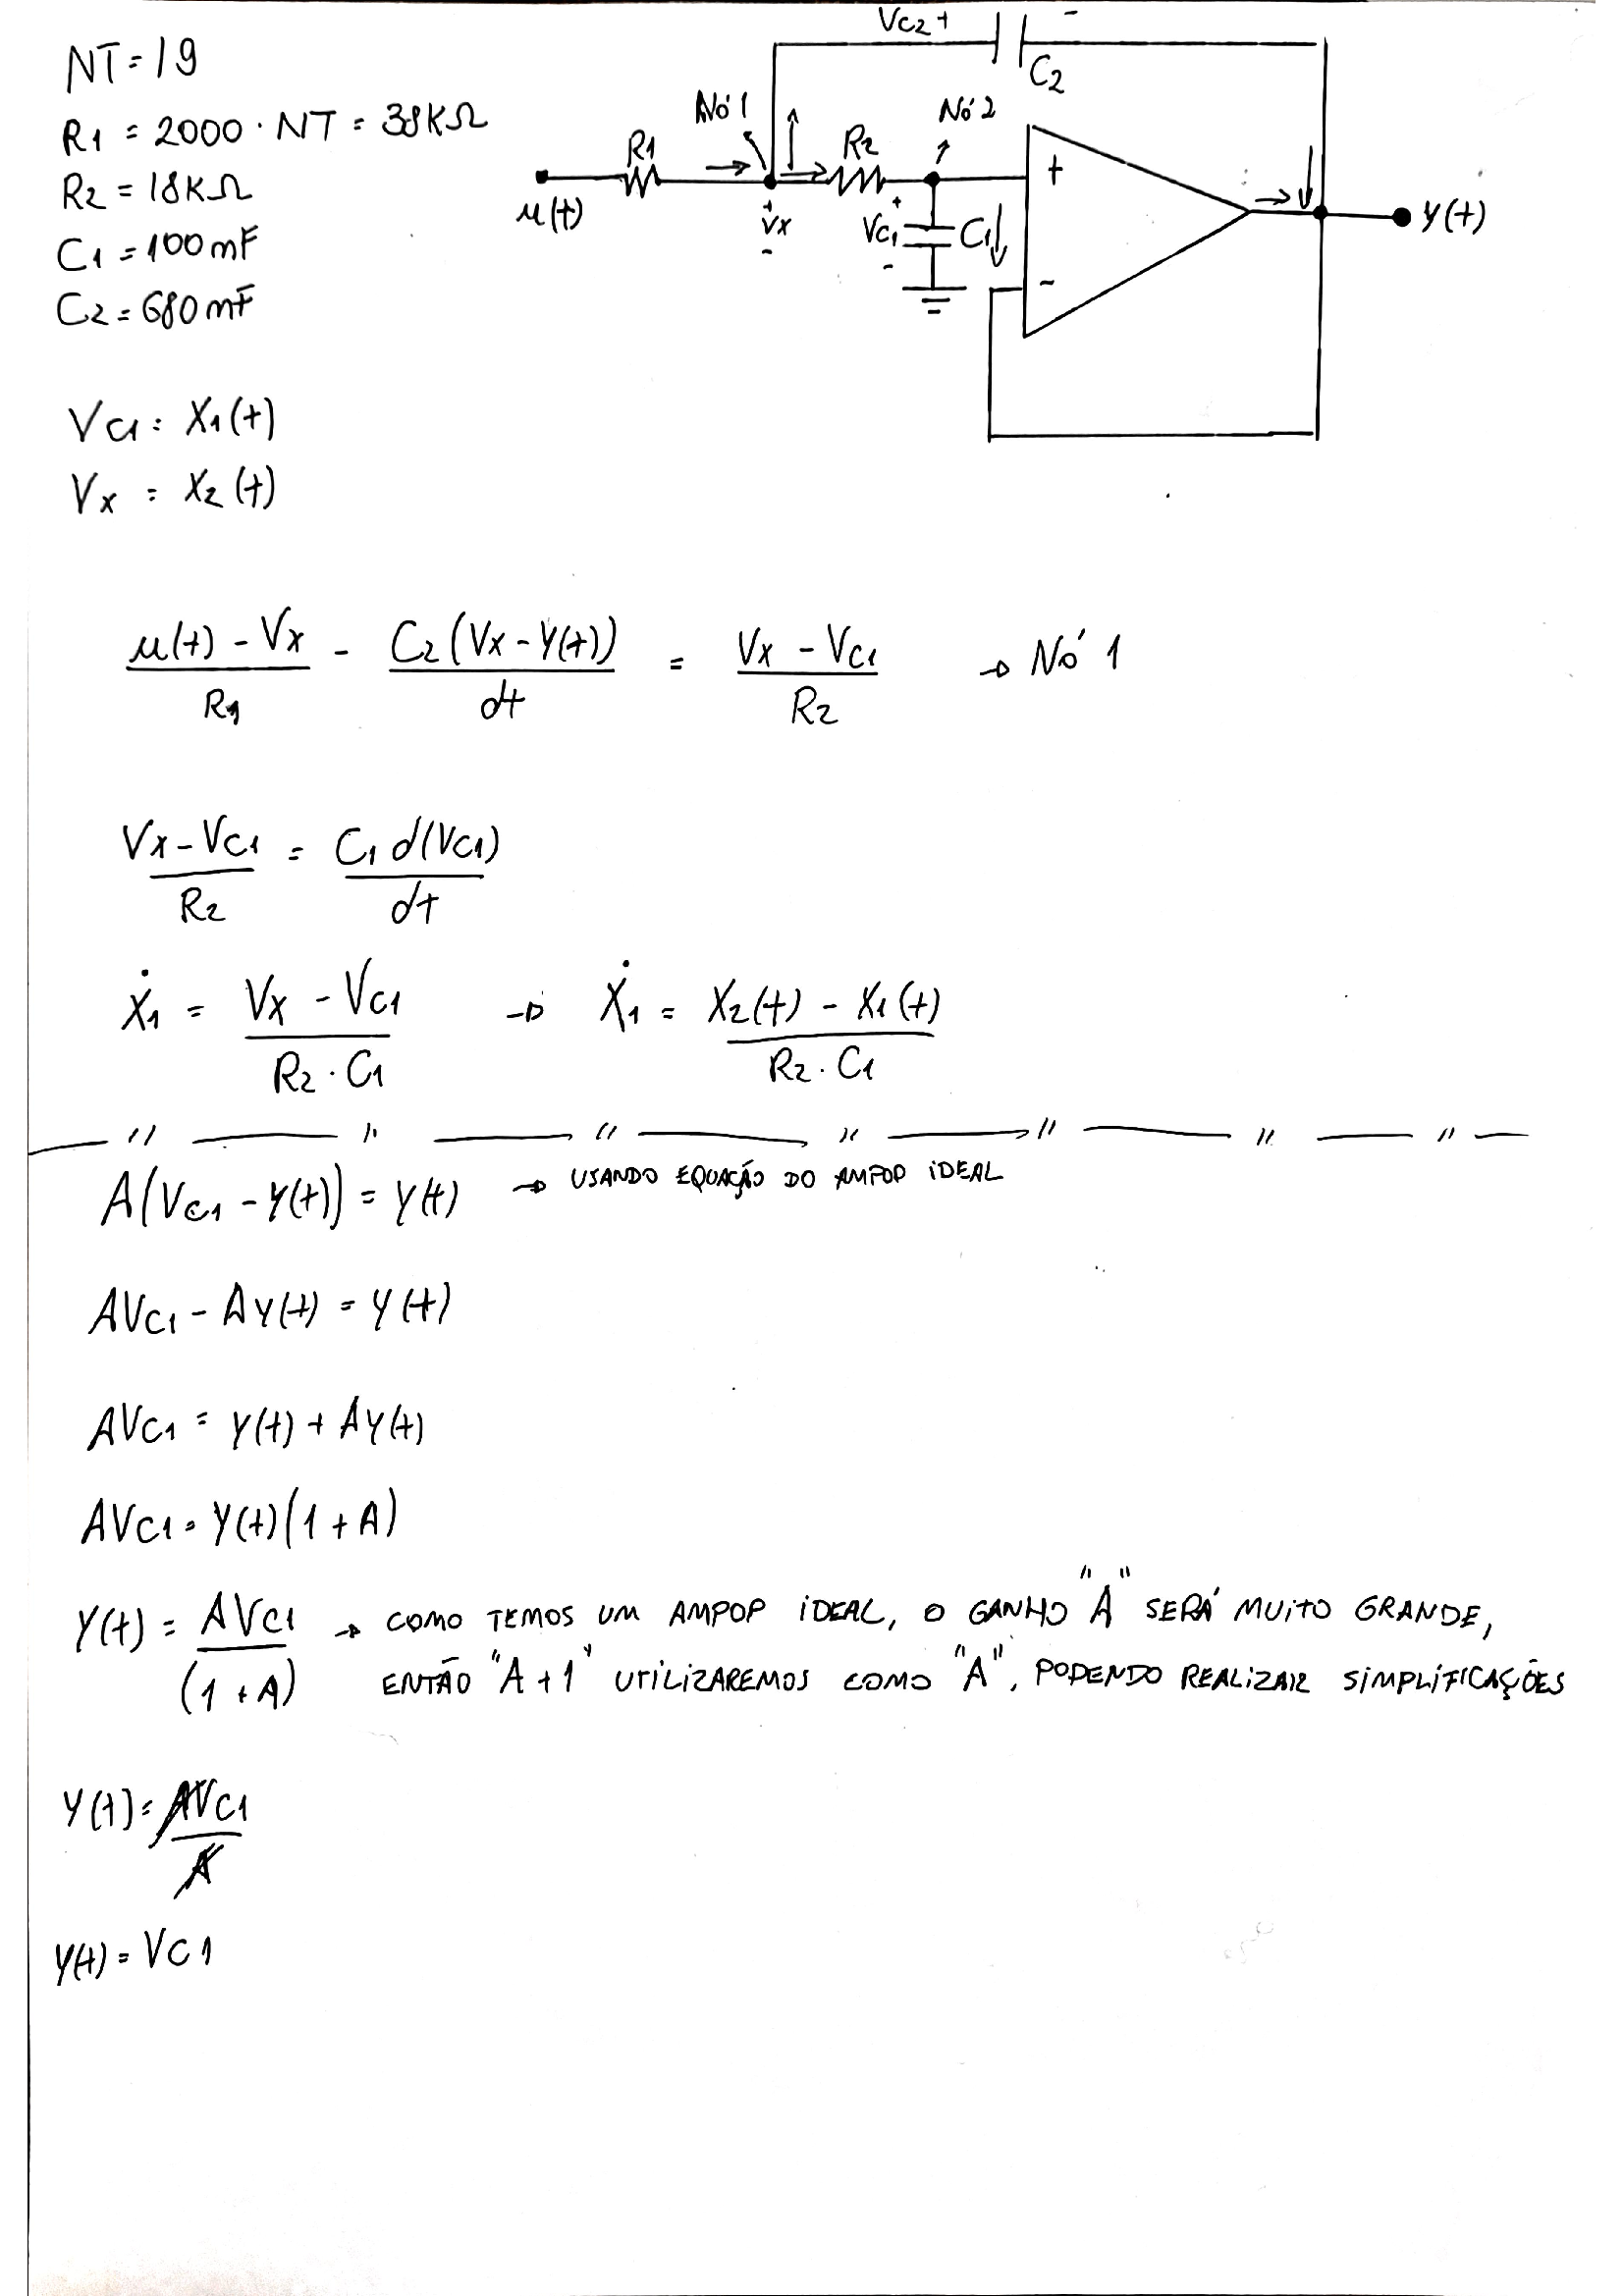 NT = 19
R1 = 2000 · NT = 38KΩ
R2 = 18KΩ
C1 = 100mF
C2 = 680mF
VC1 = X1(t)
Vx = X2(t)
VC2 + -
C2
Nó 1
Nó 2
R1
R2
u(t)
+
Vx
-
+
VC1
-
C1
+
-
y(t)
(u(t) - Vx)/R1 - C2(Vx - Y(t))/dt = (Vx - VC1)/R2 → Nó 1
(Vx - VC1)/R2 = C1 d(VC1)/dt
Ẋ1 = (Vx - VC1)/(R2 · C1) → Ẋ1 = (X2(t) - X1(t))/(R2 · C1)
— // — // — // — // — // — // — // —
A(VC1 - Y(t)) = Y(t) → USANDO EQUAÇÃO DO AMPOP IDEAL
AVC1 - AY(t) = Y(t)
AVC1 = Y(t) + AY(t)
AVC1 = Y(t)(1 + A)
Y(t) = AVC1/(1 + A) → COMO TEMOS UM AMPOP IDEAL, O GANHO "A" SERÁ MUITO GRANDE,
ENTÃO "A + 1" UTILIZAREMOS COMO "A", PODENDO REALIZAR SIMPLIFICAÇÕES
Y(t) = AVC1/A
Y(t) = VC1